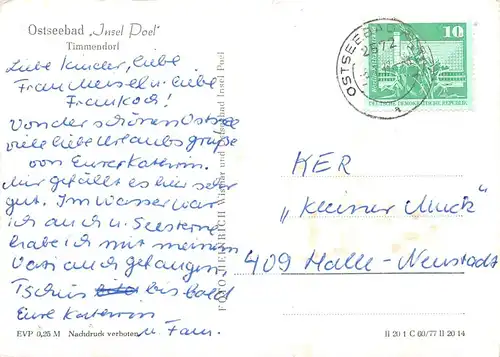 Ostseebad „Insel Poel"
Timmendorf
Liebe Kinder, liebe
Frau Meisel u. liebe
Frau Koch!
Von der schönen Ostsee
viele liebe Urlaubsgrüße
von Eurer Katrin.
Mir gefällt es hier sehr
gut. Im Wasser war
ich auch u. Seesterne
habe ich mit meinem
Vati auch gefangen,
Tschüß bis bald
Eure Katrin
u. Fam.
EVP 0,25 M Nachdruck verboten
FOTO-HEINRICH Wismar und Ostseebad Insel Poel
OSTSEEBAD
2572
10
DEUTSCHE DEMOKRATISCHE REPUBLIK
KER
„Kleiner Muck"
409 Halle-Neustadt
II 20 1 C 60/77 II 20 14